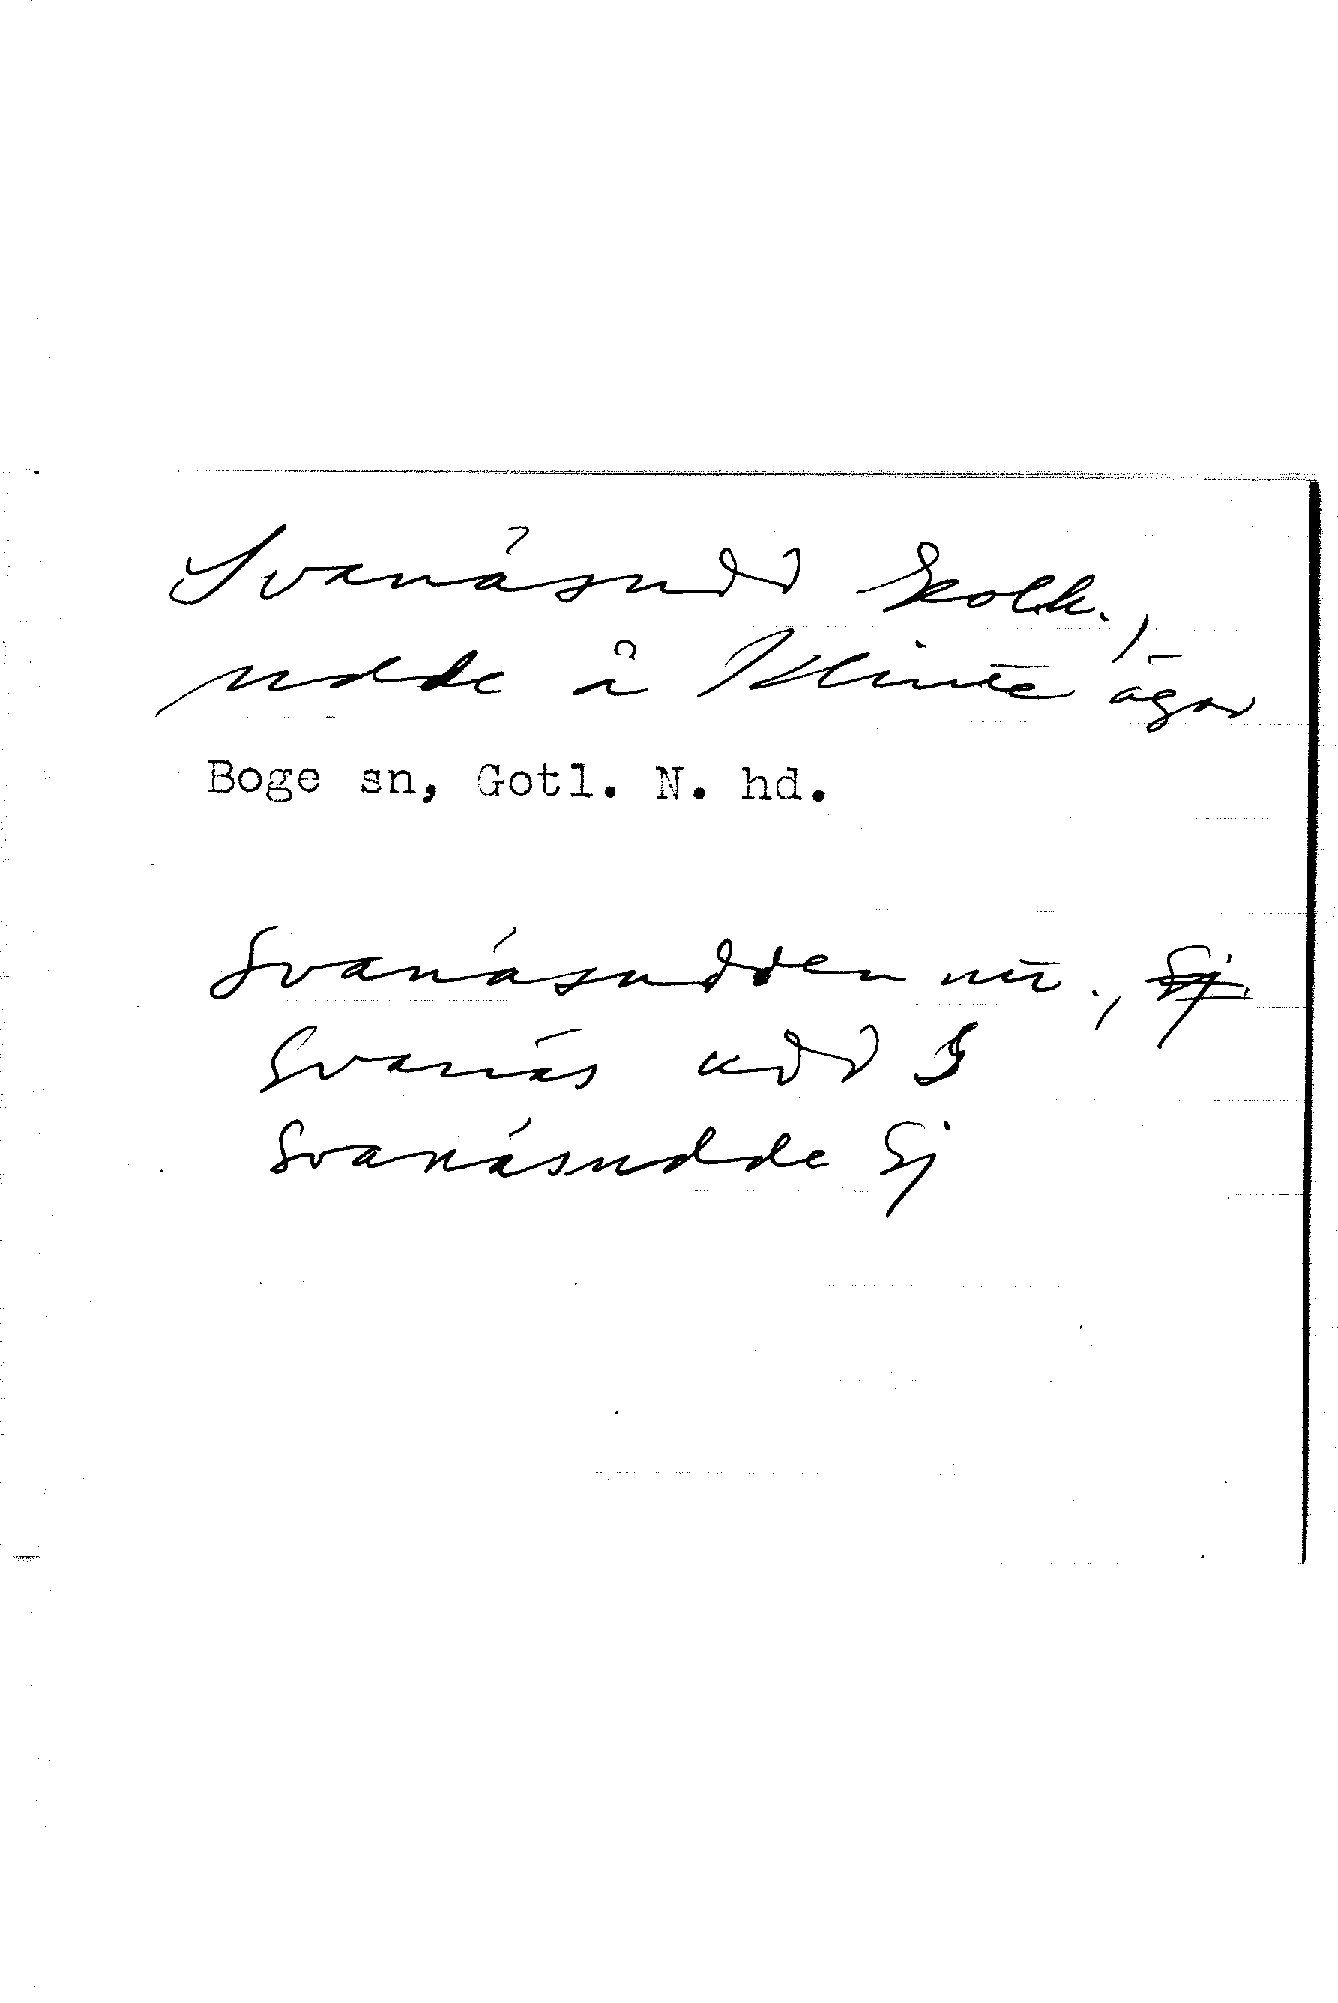 Svanäsudd Ekolk.,
udde å Klinte ägor
Boge sn, Gotl. N. hd.
Svanäsudden
Svanäs udd S
Svanäsudde Sj